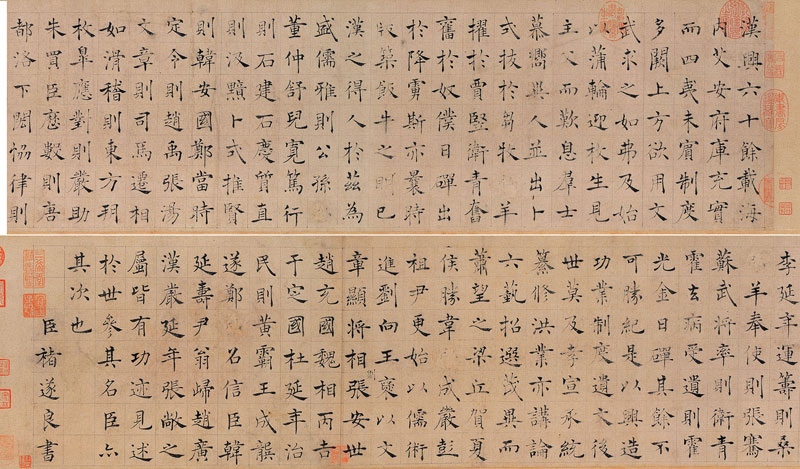 漢興六十餘載海
內艾安府庫充實
而四夷未賓制度
多闕上方欲用文
武求之如弗及始
以蒲輪迎枚生見
主父而歎息羣士
慕嚮異人並出卜
式拔於芻牧 羊
擢於賈豎衛青奮
奮於奴僕日磾出
於降虜斯亦曩時
版築飯牛之 已
漢之得人於茲為
盛儒雅則公孫
董仲舒兒寬篤行
則石建石慶質直
則汲黯卜式推賢
則韓安國鄭當時
定令則趙禹張湯
文章則司馬遷相
如滑稽則東方朔
枚皋應對則嚴助
朱買臣歷數則唐
都洛下閎協律則
李延年運籌則桑
羊奉使則張騫
蘇武將率則衛青
霍去病受遺則霍
光金日磾其餘不
可勝紀是以興造
功業制度遺文後
世莫及孝宣承統
纂修洪業亦講論
六藝招選茂異而
蕭望之梁丘賀夏
侯勝韋 成嚴彭
祖尹更始以儒術
進劉向王褒以文
章顯將相張安世
趙充國魏相丙吉
于定國杜延年治
民則黃霸王成龔
遂鄭 召信臣韓
延壽尹翁歸趙廣
漢嚴延年張敞之
屬皆有功迹見述
於世參其名臣亦
其次也
臣褚遂良書